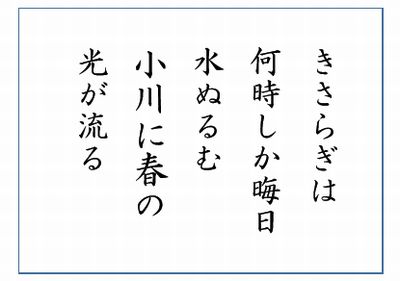 きさらぎは
何時しか晦日
水ぬるむ
小川に春の
光が流る